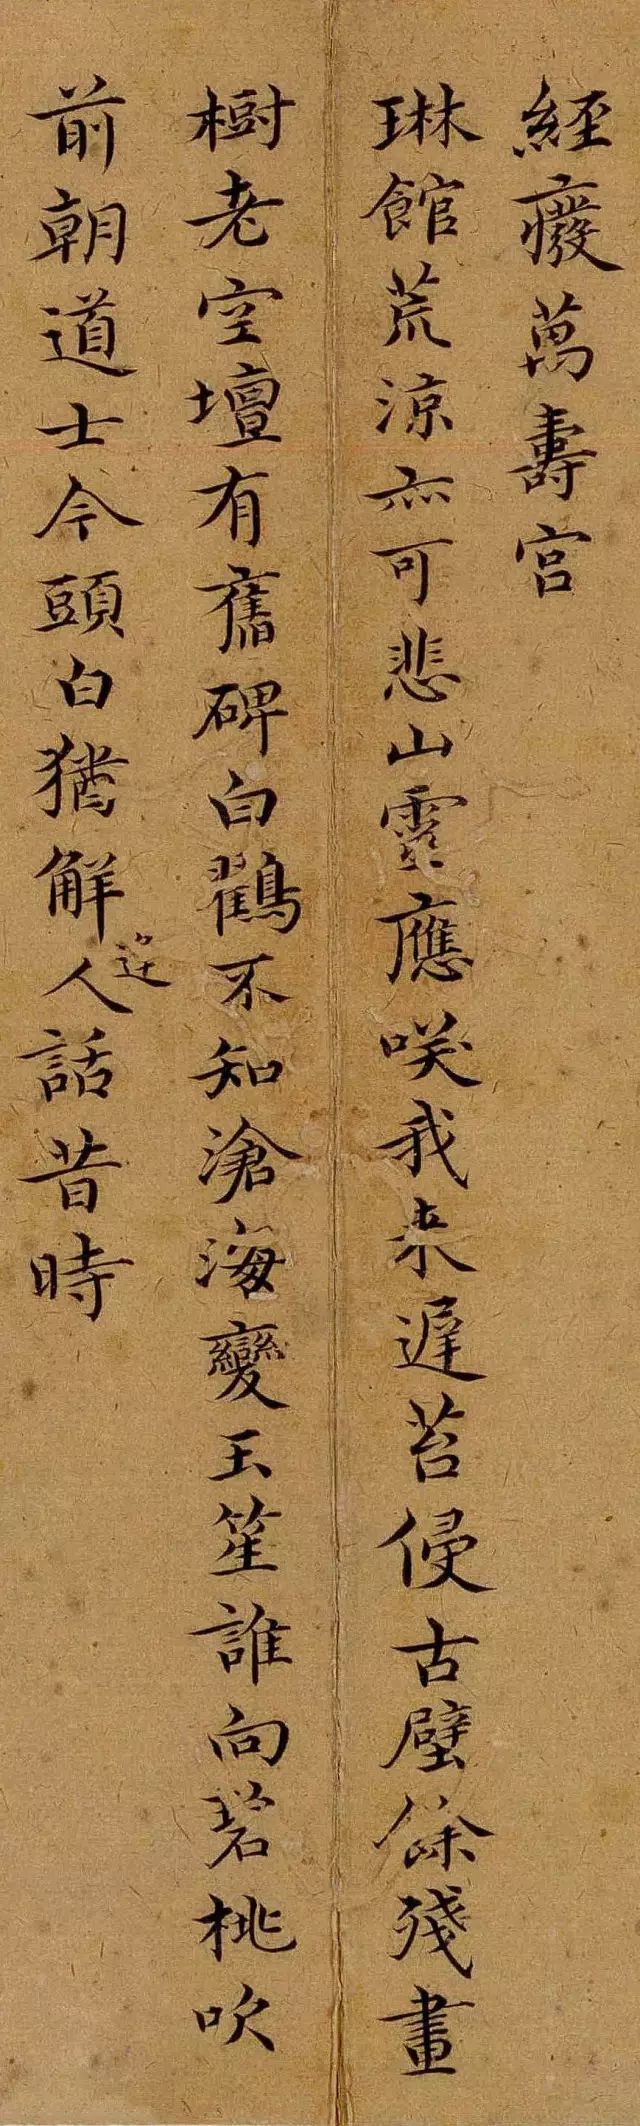 經癈萬壽宮
琳館荒涼亦可悲山靈應咲我来遲苔侵古壁餘殘畫
樹老空壇有舊碑白鶴不知滄海變玉笙誰向碧桃吹
前朝道士今頭白猶解逢人話昔時